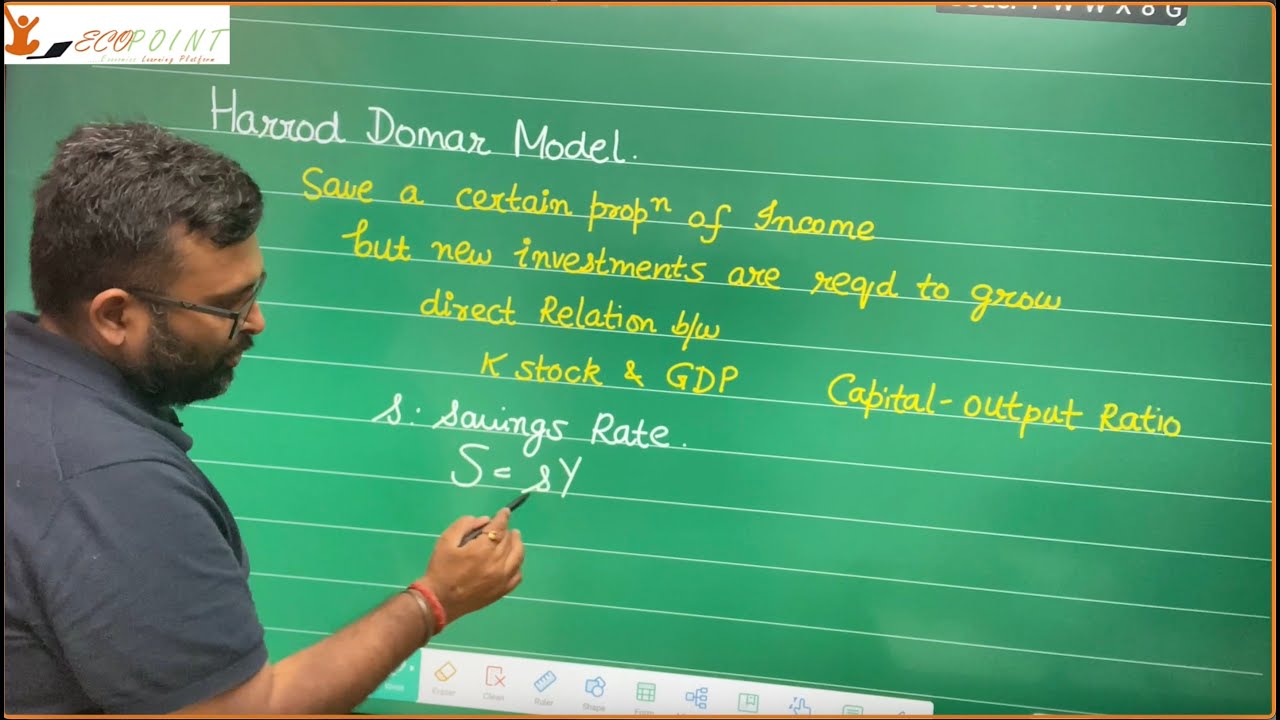 ECOPOINT
Economics Learning Platform
Harrod Domar Model.
Save a certain propⁿ of Income
but new investments are reqd to grow
direct Relation b/w
K stock & GDP Capital-output Ratio
s: savings Rate.
S = sY
Eraser Clean Ruler Shape Form